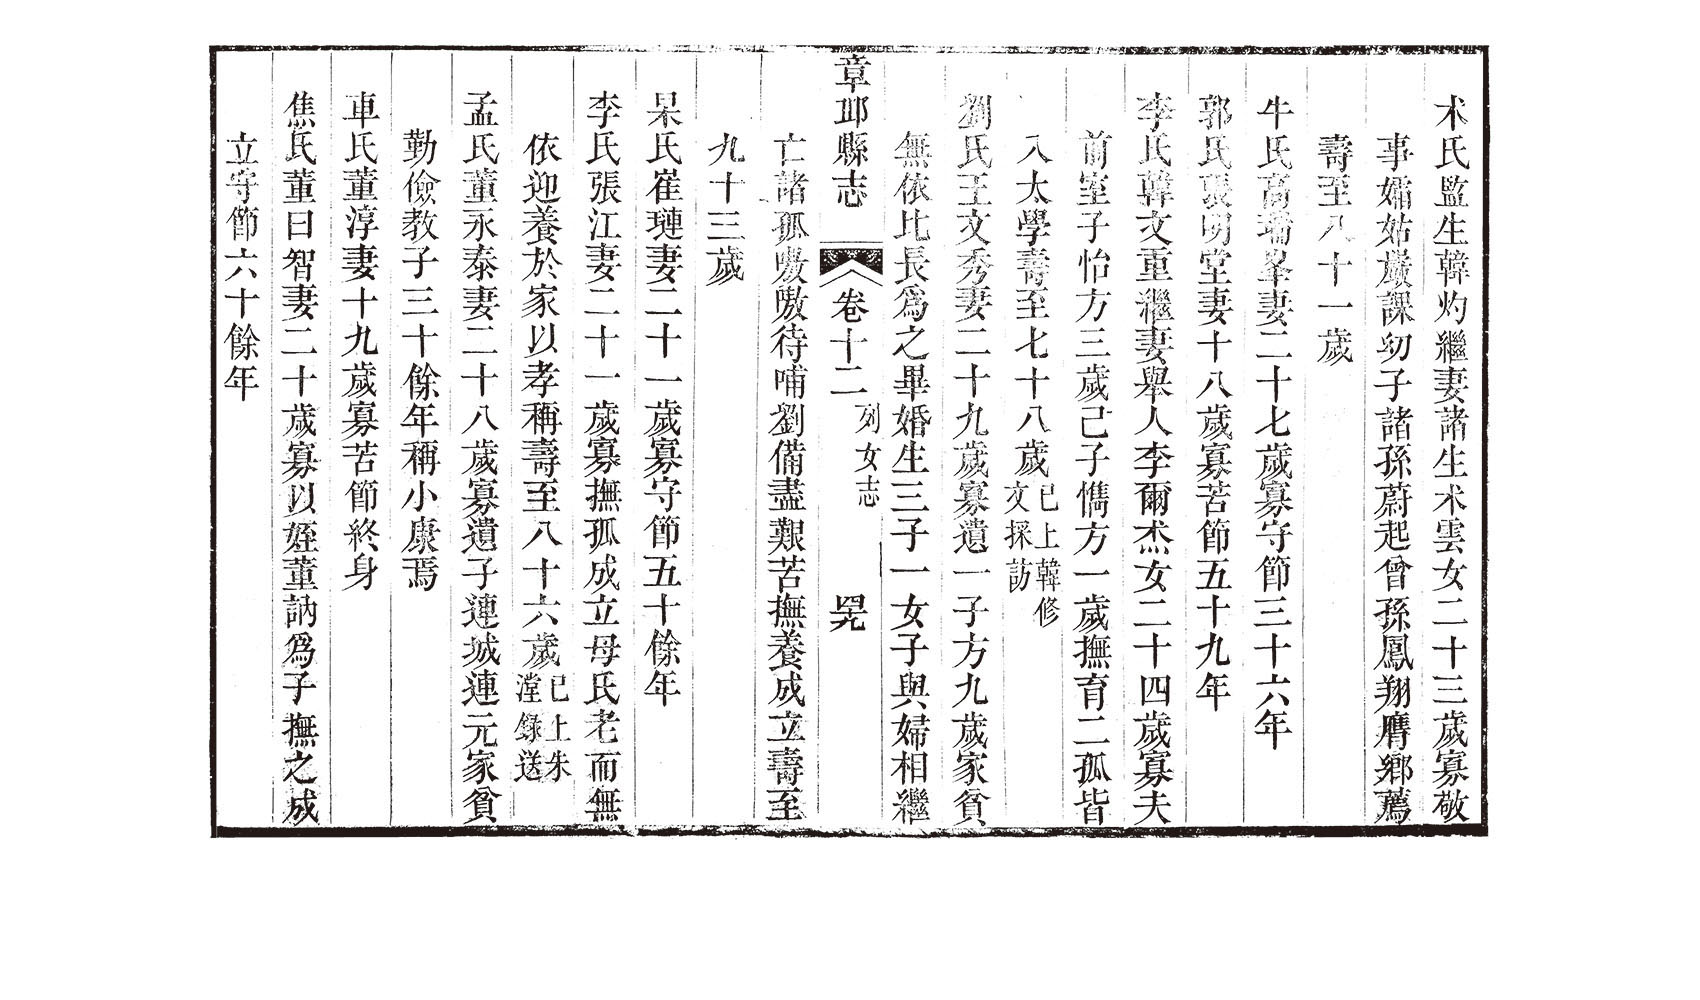 术氏監生韓灼繼妻諸生术雲女二十三歲寡敬
事孀姑嚴課幼子諸孫蔚起曾孫鳳翔膺鄉薦
壽至八十一歲
牛氏高瑞峯妻二十七歲寡守節三十六年
郭氏張明堂妻十八歲寡苦節五十九年
李氏韓文重繼妻舉人李爾杰女二十四歲寡夫
前室子怡方三歲己子儁方一歲撫育二孤皆
入太學壽至七十八歲已上韓修文採訪
劉氏王文秀妻二十九歲寡遺一子方九歲家貧
無依比長爲之畢婚生三子一女子與婦相繼
章邱縣志 卷十二 列女志 罡
亡諸孤嗷嗷待哺劉備盡艱苦撫養成立壽至
九十三歲
杲氏崔璉妻二十一歲寡守節五十餘年
李氏張江妻二十一歲寡撫孤成立母氏老而無
依迎養於家以孝稱壽至八十六歲已上朱瀅錄送
孟氏董永泰妻二十八歲寡遺子連城連元家貧
勤儉教子三十餘年稱小康焉
車氏董淳妻十九歲寡苦節終身
焦氏董曰智妻二十歲寡以姪董訥爲子撫之成
立守節六十餘年